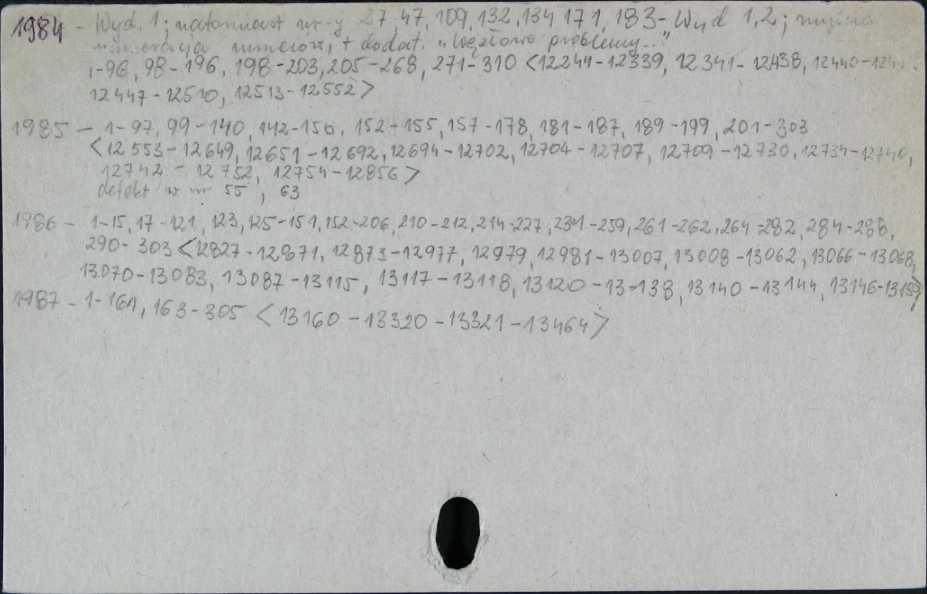 1984 - Wyd. 1; natomiast nr-y 27-47, 109, 132, 134 171, 183 - Wyd 1,2; mylna
numeracja numerów, + dodat. "Węzłowe problemy..."
1-96, 98-196, 198-203, 205-268, 271-310 <12244-12339, 12341-12438, 12440-
12447-12510, 12513-12552>
1985 - 1-97, 99-140, 142-150, 152-155, 157-178, 181-187, 189-199, 201-303
<12553-12649, 12651-12692, 12694-12702, 12704-12707, 12709-12730, 12734-12740,
12742-12752, 12754-12856>
defekt w nr 55, 63
1986 - 1-15, 17-121, 123, 125-151, 152-206, 210-212, 214-227, 231-259, 261-262, 264-282, 284-288,
290-303 <12827-12871, 12873-12977, 12979, 12981-13007, 13008-13062, 13066-13068,
13070-13083, 13087-13115, 13117-13118, 13120-13-138, 13140-13144, 13146-13159>
1987 - 1-161, 163-305 <13160-13320-13321-13464>